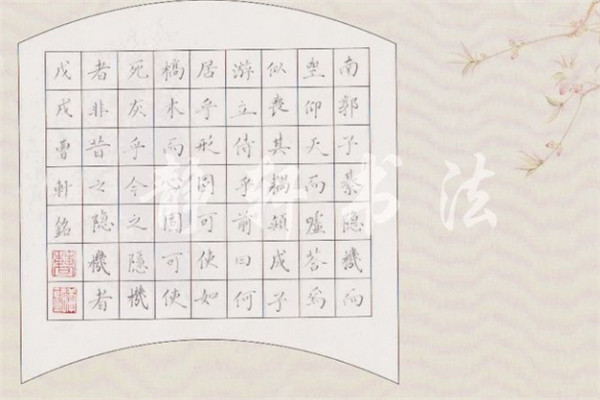 南郭子綦隐機而
坐仰天而嘘荅焉
似喪其耦顔成子
游立侍乎前曰何
居乎形固可使如
槁木而心固可使
死灰乎今之隐機
者非昔之隐機者
戊戌曹軒銘
静轩书法